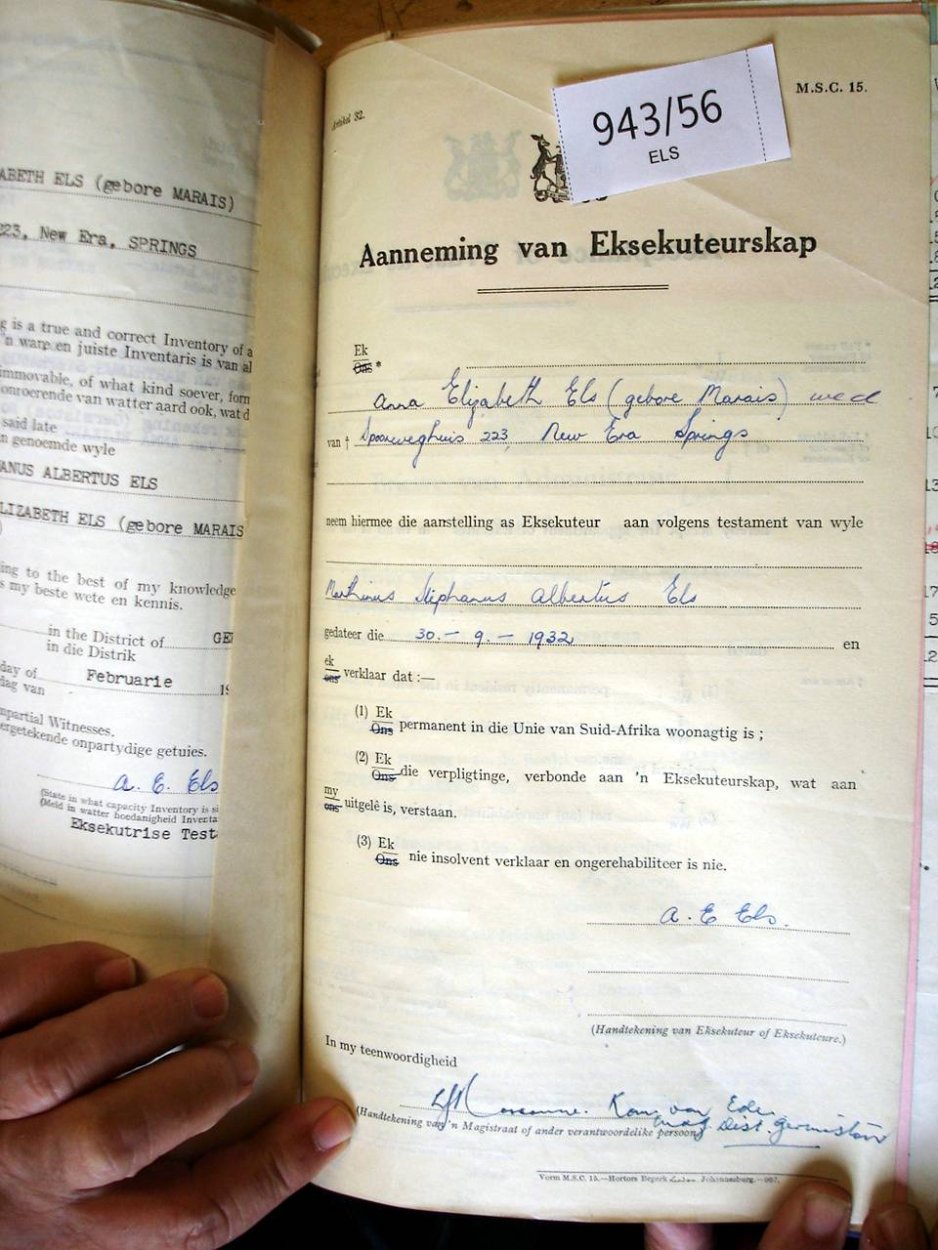 ABETH ELS (gebore MARAIS)
223, New Era, SPRINGS
g is a true and correct Inventory of a
'n ware en juiste Inventaris is van al
immovable, of what kind soever, form
onroerende van watter aard ook, wat d
said late
n genoemde wyle
ANUS ALBERTUS ELS
LIZABETH ELS (gebore MARAIS
)
ing to the best of my knowledge
s my beste wete en kennis.
in the District of GE
in die Distrik
day of Februarie 19
dag van
mpartial Witnesses.
ergetekende onpartydige getuies.
A. E. Els
(State in what capacity Inventory is si
(Meld in watter hoedanigheid Inventa
Eksekutrise Test
Artikel 32.
M.S.C. 15.
943/56
ELS
Aanneming van Eksekuteurskap
Ek
Ons *
Anna Elizabeth Els (gebore Marais) wed
van † Spoorweghuis 223, New Era Springs
neem hiermee die aanstelling as Eksekuteur aan volgens testament van wyle
Marthinus Stephanus Albertus Els
gedateer die 30.- 9.- 1932 en
ek
ons verklaar dat :—
(1) Ek
Ons permanent in die Unie van Suid-Afrika woonagtig is ;
(2) Ek
Ons die verpligtinge, verbonde aan 'n Eksekuteurskap, wat aan
my
ons uitgelê is, verstaan.
(3) Ek
Ons nie insolvent verklaar en ongerehabiliteer is nie.
A. E Els.
(Handtekening van Eksekuteur of Eksekuteure.)
In my teenwoordigheid
Kom. van Ede
Dist. Germiston
(Handtekening van 'n Magistraat of ander verantwoordelike persoon)
Vorm M.S.C. 15.—Hortors Beperk Johannesburg.